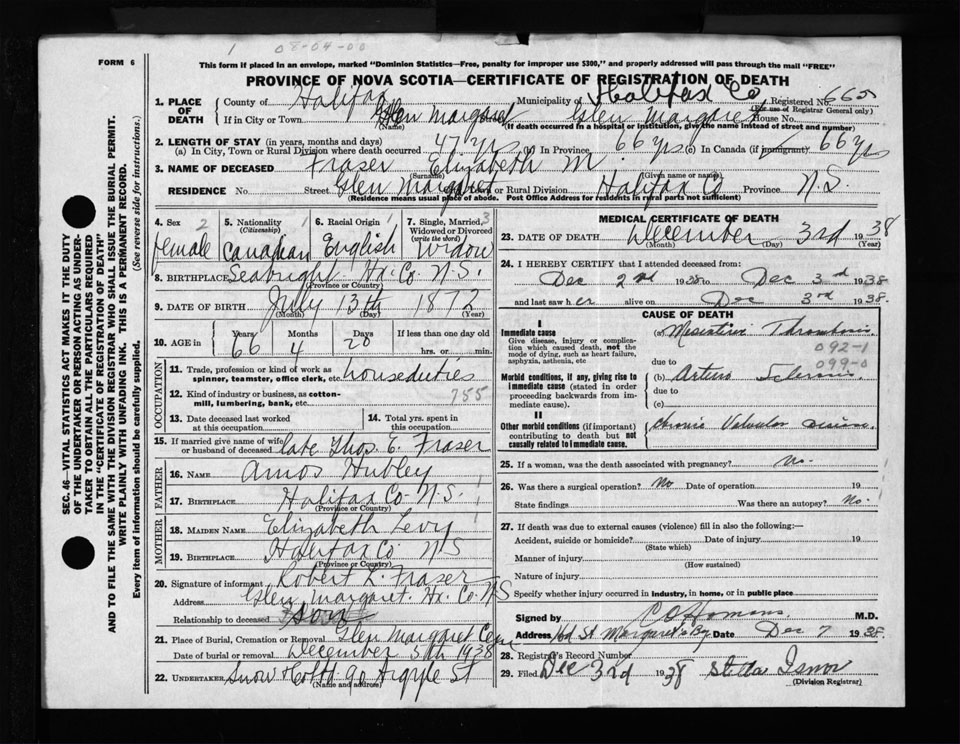 1 08-04-00
FORM 6
This form if placed in an envelope, marked "Dominion Statistics—Free, penalty for improper use $300," and properly addressed will pass through the mail "FREE"
PROVINCE OF NOVA SCOTIA—CERTIFICATE OF REGISTRATION OF DEATH
SEC. 46—VITAL STATISTICS ACT MAKES IT THE DUTY
OF THE UNDERTAKER OR PERSON ACTING AS UNDER-
TAKER TO OBTAIN ALL THE PARTICULARS REQUIRED
IN THE "CERTIFICATE OF REGISTRATION OF DEATH"
AND TO FILE THE SAME WITH THE DIVISION REGISTRAR WHO SHALL ISSUE THE BURIAL PERMIT.
WRITE PLAINLY WITH UNFADING INK. THIS IS A PERMANENT RECORD.
Every item of information should be carefully supplied. (See reverse side for instructions.)
1. PLACE OF DEATH County of Halifax Municipality of Halifax Co Registered No. 665
(For use of Registrar General only)
If in City or Town Glen Margaret Glen Margaret House No.
(Name) (If death occurred in a hospital or institution, give the name instead of street and number)
2. LENGTH OF STAY (in years, months and days)
(a) In City, Town or Rural Division where death occurred 47 yrs (b) In Province 66 yrs (c) In Canada (if immigrant) 66 yrs
3. NAME OF DECEASED Fraser Elizabeth M.
(Surname) (Given name or names)
RESIDENCE No. Street Glen Margaret City, Town or Rural Division Halifax Co Province N.S.
(Residence means usual place of abode. Post Office Address for residents in rural parts not sufficient)
4. Sex 2 5. Nationality 1 6. Racial Origin 1 7. Single, Married, 3
(Citizenship) Widowed or Divorced
(write the word)
Female Canadian English Widow
8. BIRTHPLACE Seabright Hx. Co. N.S.
(Province or Country)
9. DATE OF BIRTH July 13th 1872
(Month) (Day) (Year)
10. AGE in Years Months Days If less than one day old
66 4 20 hrs. or min.
OCCUPATION
11. Trade, profession or kind of work as
spinner, teamster, office clerk, etc. houseduties
12. Kind of industry or business, as cotton-
mill, lumbering, bank, etc. 755
13. Date deceased last worked
at this occupation
14. Total yrs. spent in
this occupation
15. If married give name of wife
or husband of deceased late Thos E. Fraser
FATHER
16. NAME Amos Hubley
17. BIRTHPLACE Halifax Co. N.S.
(Province or Country)
MOTHER
18. MAIDEN NAME Elizabeth Levy
19. BIRTHPLACE Halifax Co. N S
(Province or Country)
20. Signature of informant Robert L. Fraser
Address Glen Margaret. Hx. Co. N S
Relationship to deceased Son
21. Place of Burial, Cremation or Removal Glen Margaret Cem
Date of burial or removal December 5th 1938
22. UNDERTAKER Snow 90 Argyle St
(Name and address)
MEDICAL CERTIFICATE OF DEATH
23. DATE OF DEATH December 3rd 1938
(Month) (Day) (Year)
24. I HEREBY CERTIFY that I attended deceased from:
Dec 2nd 1938 to Dec 3rd 1938
and last saw her alive on Dec 3rd 1938.
CAUSE OF DEATH
I
Immediate cause
Give disease, injury or complica-
tion which caused death, not the
mode of dying, such as heart failure,
asphyxia, asthenia, etc
(a) Thrombosis.
092-1
099-0
due to
Morbid conditions, if any, giving rise to
immediate cause (stated in order
proceeding backwards from im-
mediate cause).
(b) Arterio Sclerosis.
due to
(c)
II
Other morbid conditions (if important)
contributing to death but not
causally related to immediate cause.
Chronic Valvular disease.
25. If a woman, was the death associated with pregnancy? no.
26. Was there a surgical operation? No Date of operation 19
State findings Was there an autopsy? No.
27. If death was due to external causes (violence) fill in also the following:—
Accident, suicide or homicide? Date of injury 19
(State which)
Manner of injury
(How sustained)
Nature of injury
Specify whether injury occurred in industry, in home, or in public place
Signed by M.D.
Address Hd St Margaret's Bay Date Dec 7 1938.
28. Registrar's Record Number
29. Filed Dec 3rd 1938 Stella Isnor
(Division Registrar)